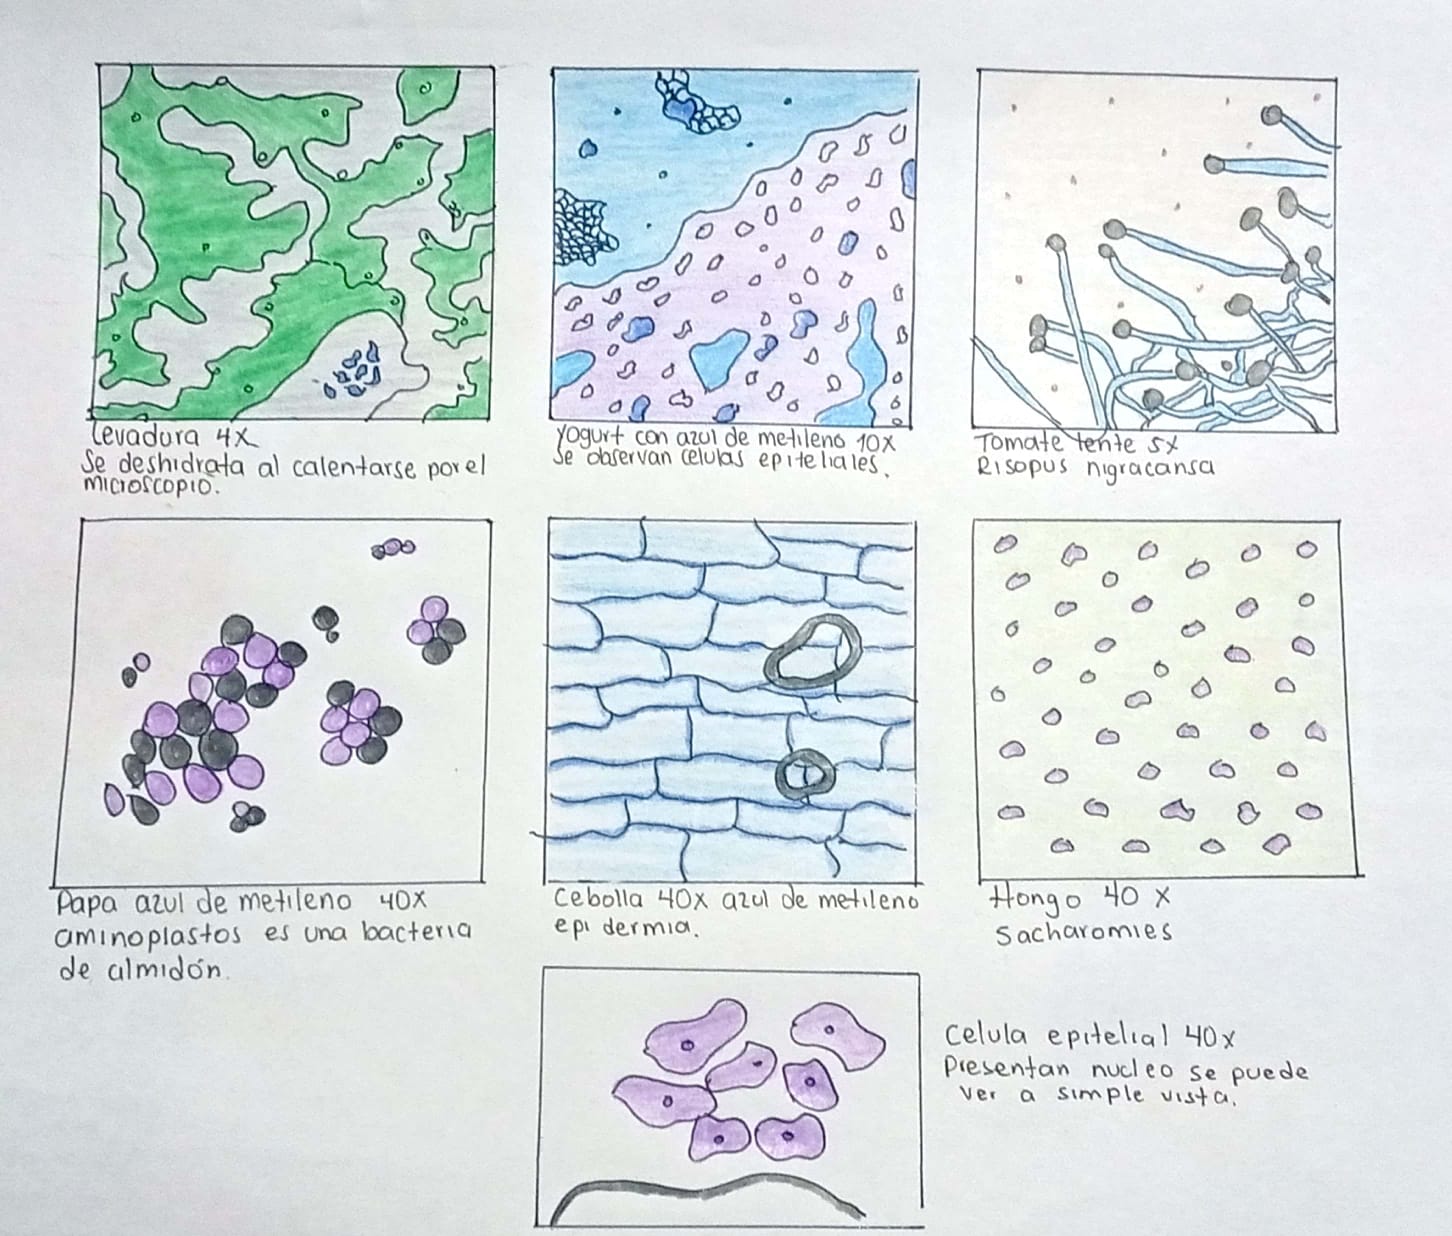 Levadura 4X
Se deshidrata al calentarse por el
microscopio.
Yogurt con azul de metileno 10X
Se observan celulas epiteliales.
Tomate lente 5X
Risopus nigracansa
Papa azul de metileno 40X
aminoplastos es una bacteria
de almidón.
Cebolla 40X azul de metileno
epidermia.
Hongo 40 X
Sacharomies
Celula epitelial 40X
Presentan nucleo se puede
ver a simple vista.